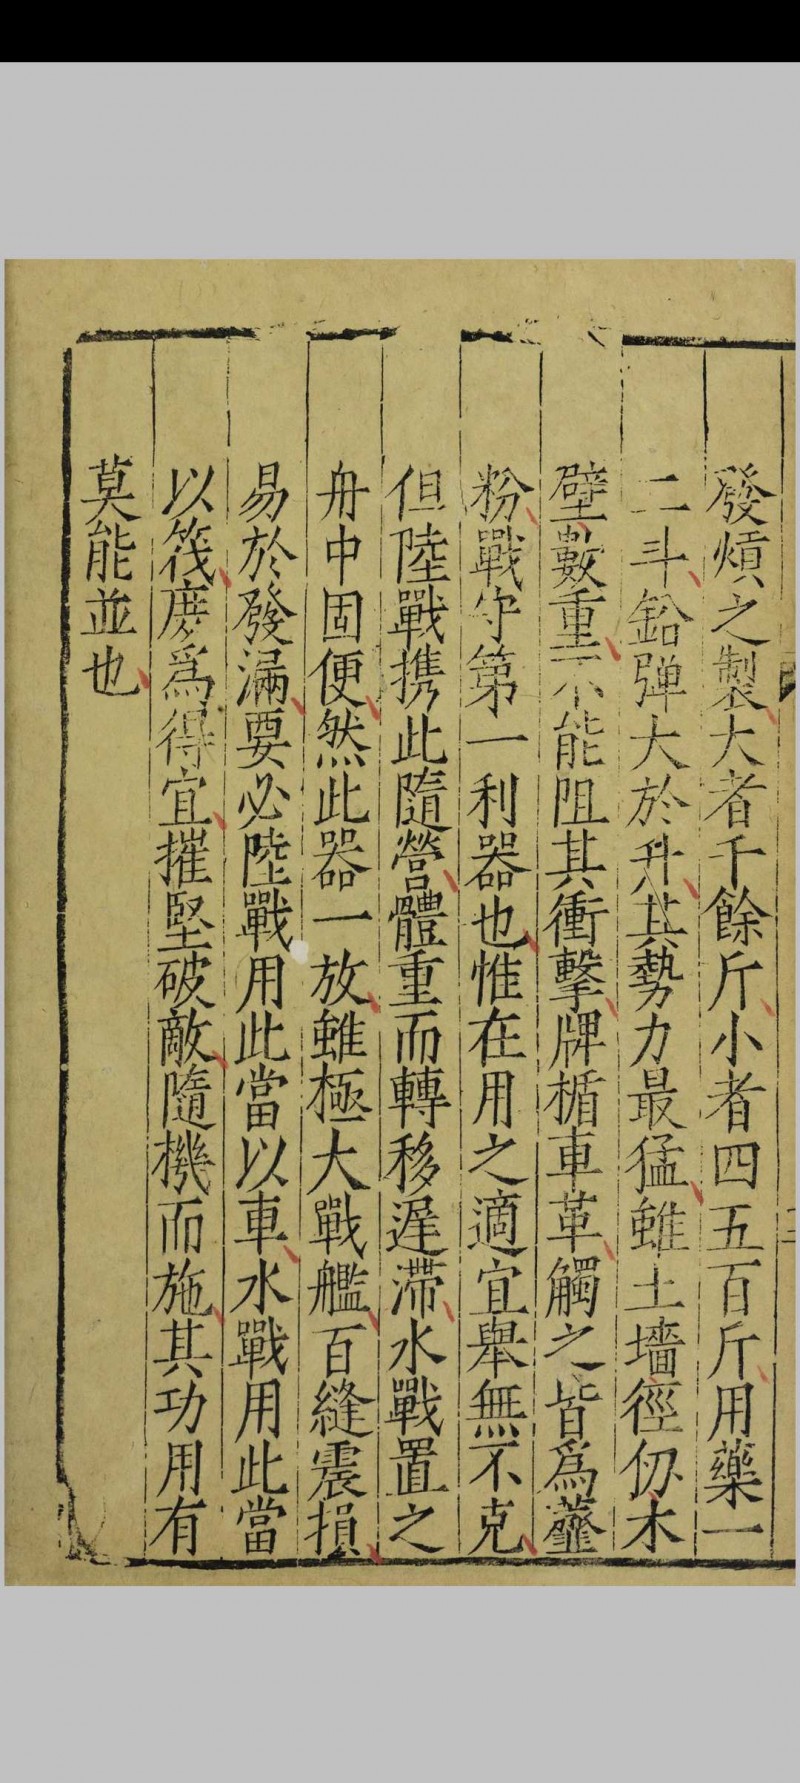 發熕之製大者千餘斤小者四五百斤用藥一
二斗鉛弹大於升其勢力最猛雖土墻徑仭木
壁數重不能阻其衝擊牌楯車革觸之皆爲虀
粉戰守第一利器也惟在用之適宜舉無不克
但陸戰携此隨營體重而轉移遲滯水戰置之
舟中固便然此器一放雖極大戰艦百縫震損
易於發漏要必陸戰用此當以車水戰用此當
以筏庶爲得宜摧堅破敵隨機而施其功用有
莫能並也